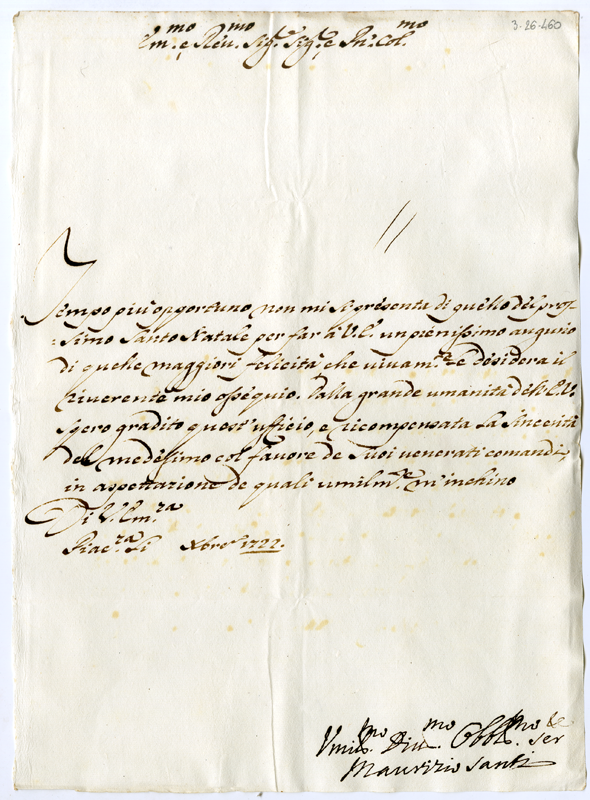 3-26-460
Em.mo e Rev.mo Sig.r Sig.r e Pn. Col.mo
Tempo più opportuno non mi si presenta di quello del pros-
=simo Santo Natale per far à V.E. un pienissimo augurio
di quelle maggiori felicità, che vivam.te Le desidera il
riverente mio ossequio. Dalla grande umanità dell'E.V.
spero gradito quest'ufficio, e ricompensata la sincerità
del medesimo col favore de suoi venerati comandi,
in aspettazione de quali umilm.te m'inchino
Di V. Em.za
Piac.za Li Xbre 1722.
Umil.mo Div.mo Obbl.mo Ser.re
Maurizio Santi